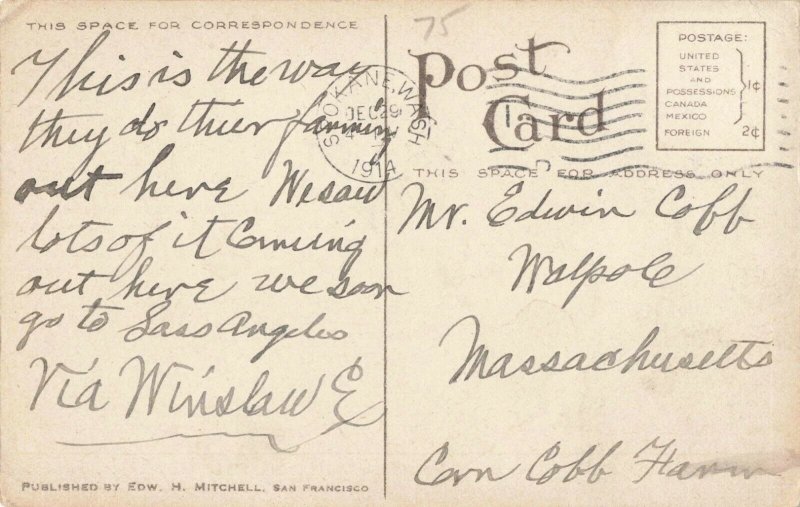 THIS SPACE FOR CORRESPONDENCE
This is the way
they do thier farming
out here We saw
lots of it Comeing
out here we soon
go to Lass Angeles
Via Winslaw E
PUBLISHED BY EDW. H. MITCHELL, SAN FRANCISCO
75
SPOKANE, WASH
DEC 29
1914
Post Card
POSTAGE:
UNITED
STATES
AND
POSSESSIONS
CANADA
MEXICO
1¢
FOREIGN 2¢
THIS SPACE FOR ADDRESS ONLY
Mr. Edwin Cobb
Walpole
Massachusetts
Cobb Farm